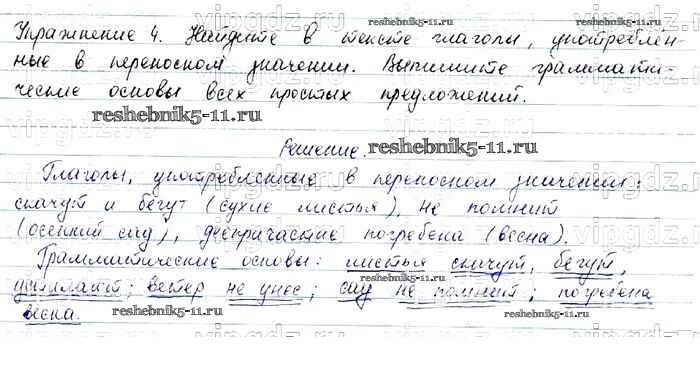 Упражнение 4. Найдите в тексте глаголы, употреблён-
ные в переносном значении. Выпишите граммати-
ческие основы всех простых предложений.
Решение.
Глаголы, употребленные в переносном значении:
скачут и бегут (сухие листья), не помнит
(осенний сад), деепричастие погребена (весна).
Грамматические основы: листья скачут, бегут,
устилают; ветер не унес; сад не помнит; погребена
весна.
reshebnik5-11.ru
reshebnik5-11.ru
reshebnik5-11.ru
reshebnik5-11.ru
reshebnik5-11.ru
vipgdz.ru